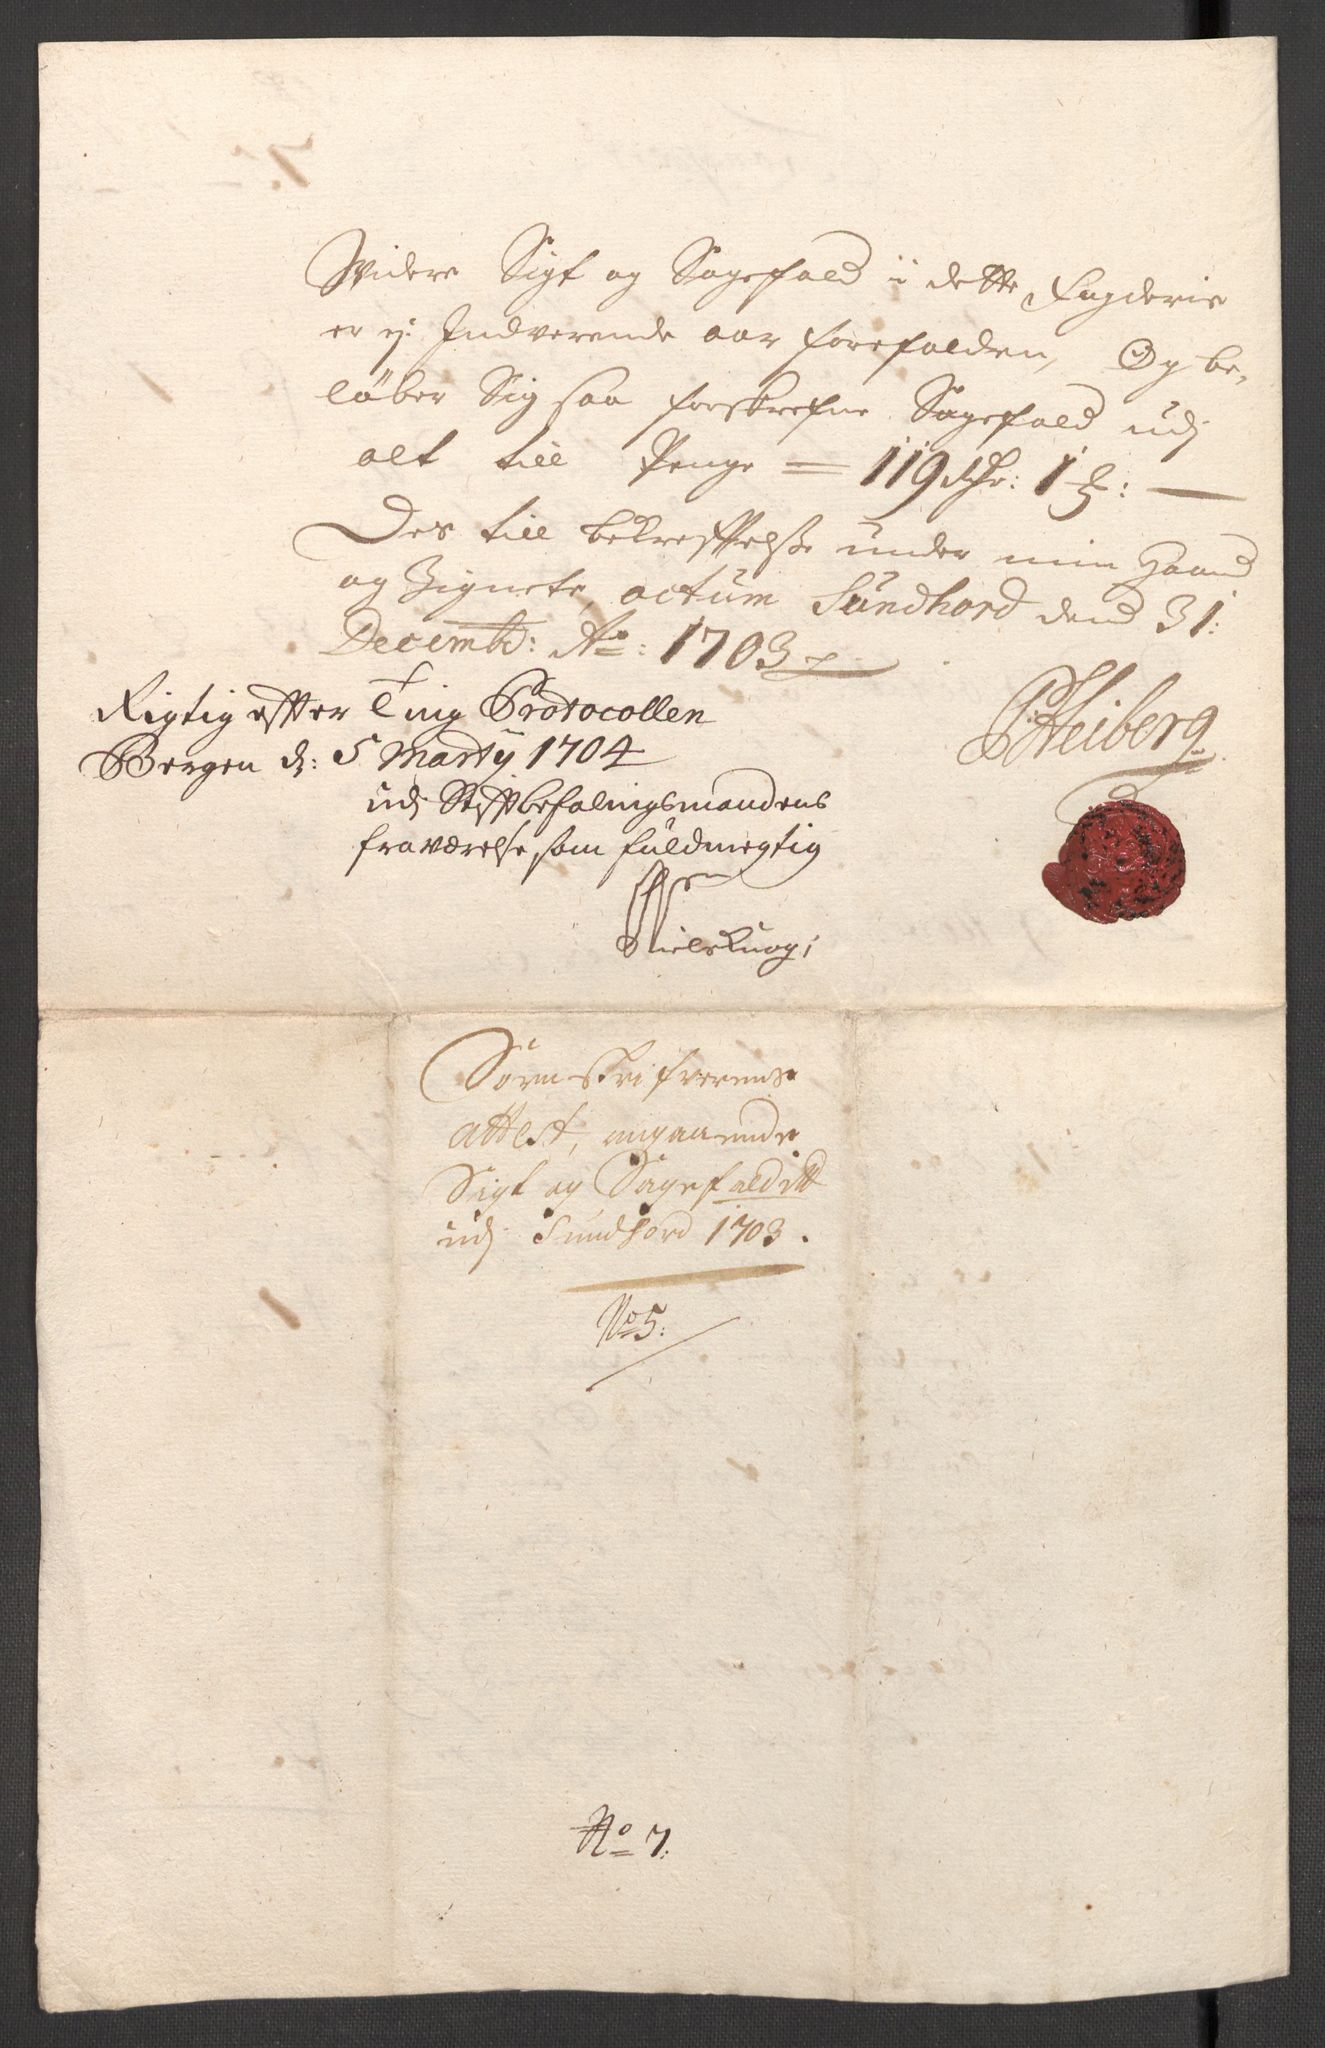 Widere Sigt og Sagefald i dette Fogderie
er ej Indverende aar forefalden, Og be,
løber Sig saa forskrefne Sagefald udj
alt till Penge = 119 Rdr: 1 ß: —
Des till bekreftelse under min Haand
og Zignete, actum Sundhord dend 31:
Decembr: Ao: 1703
PHeiberg
Rigtig efter Ting Protocollen
Bergen d: 5 Martij 1704
udj Stiftbefalingsmandens
fraværelse som fuldmegtig
Niels Knag:
Sorenskrifverens
attest, angaaende
Sigt og Sagefalditt
udj Sundhord 1703.
No 5:
No 7: